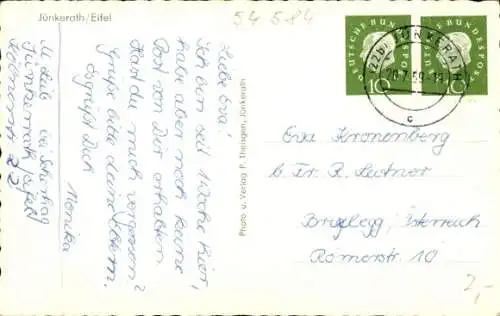 Jünkerath/Eifel
54 584
Liebe Eva!
Ich bin seit 1 Woche hier,
habe aber noch keine
Post von Dir erhalten.
Hast du mich vergessen?
Grüße bitte deine Eltern.
Es grüßt Dich
Monika
M. bei
Jünkerath Eifel
22
Photo u. Verlag P. Theisgen, Jünkerath
DEUTSCHE BUNDESPOST
10
DEUTSCHE BUNDESPOST
10
(22b) JÜNKERATH
c
Eva Kronenberg
b. Fr. R. Leitner
Brixlegg, Österreich
Römerstr. 10
2,-